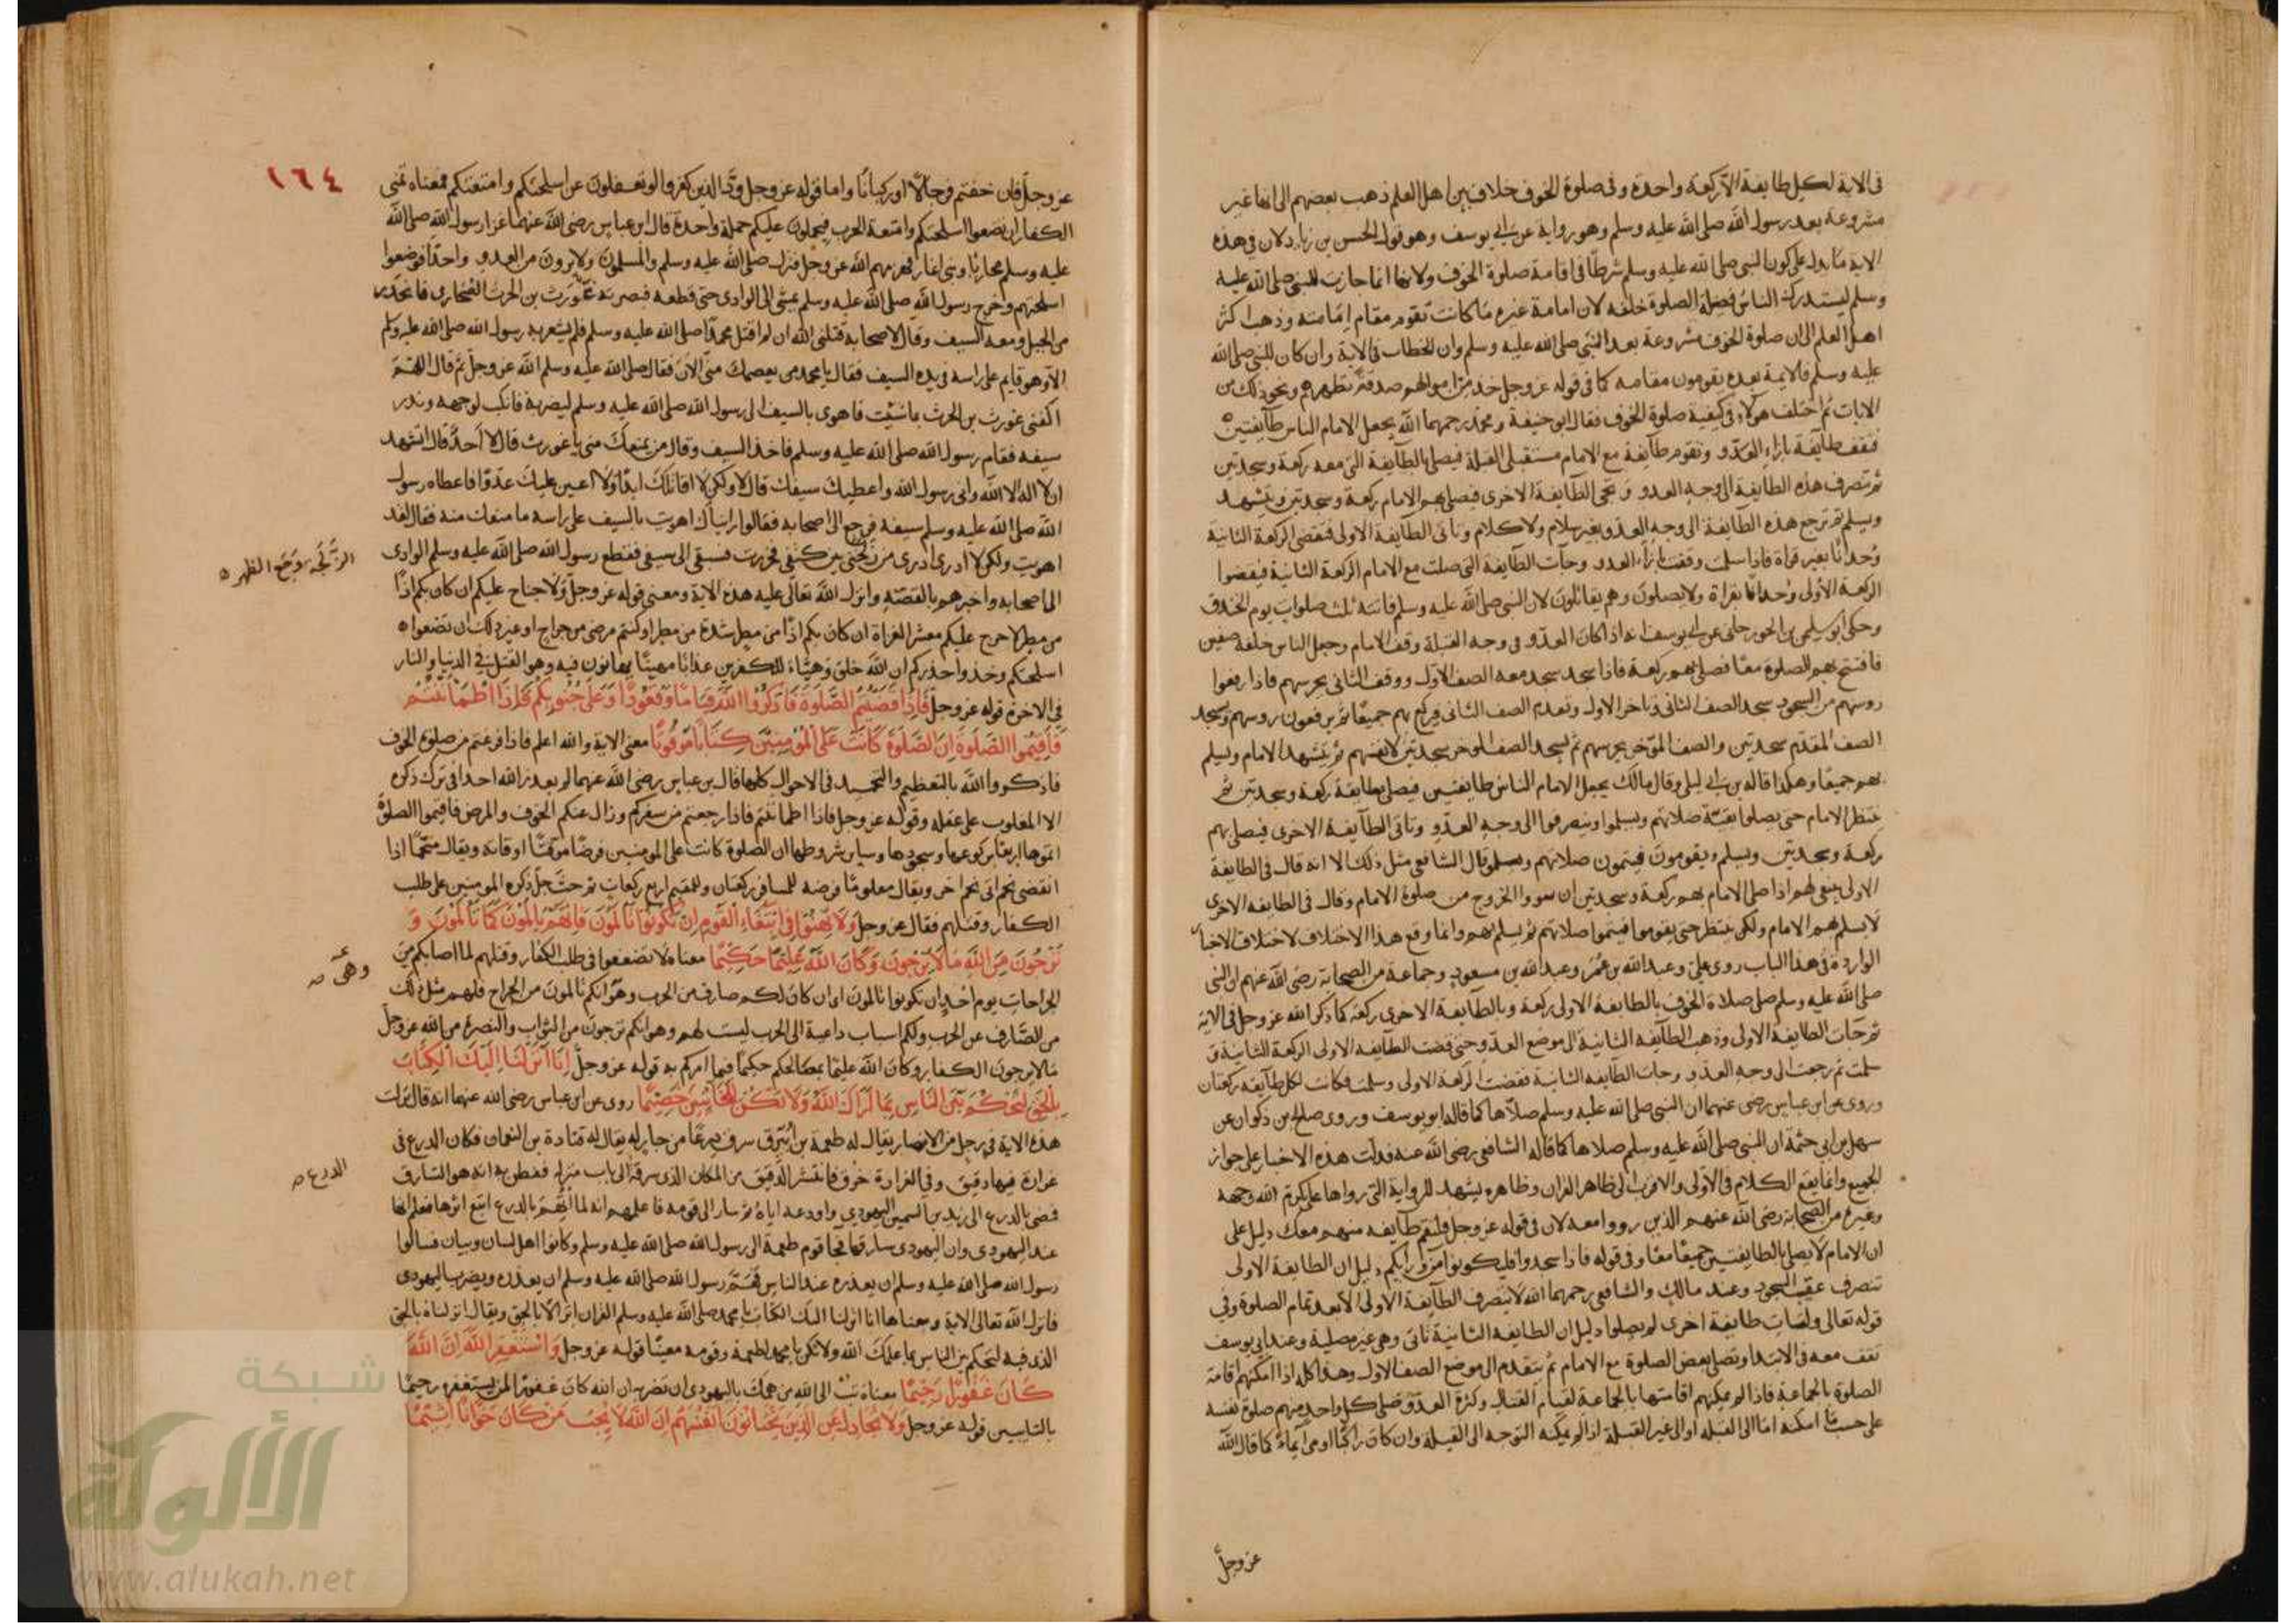 في الاية لكل طايفة الا ركعة واحدة وفي صلوة الخوف خلاف بين اهل العلم ذهب بعضهم الى انها غير
مشروعة بعد رسول الله صلى الله عليه وسلم وهو رواية عن ابي يوسف وهو قول الحسن بن زياد لان في هذه
الاية ما يدل على كون النبي صلى الله عليه وسلم شرطا في اقامة صلوة الخوف ولانها انما جازت للنبي صلى الله عليه
وسلم ليستدرك الناس فضيلة الصلوة خلفه لان امامة غيره ما كانت تقوم مقام امامته وذهب اكثر
اهل العلم الى ان صلوة الخوف مشروعة بعد النبي صلى الله عليه وسلم وان الخطاب في الاية وان كان للنبي صلى الله
عليه وسلم فالايمة بعده يقومون مقامه كما في قوله عز وجل خذ من اموالهم صدقة تطهرهم ونحو ذلك من
الايات ثم اختلف هولاء في كيفية صلوة الخوف فقال ابو حنيفة ومحمد رحمهما الله يجعل الامام الناس طايفتين
فتقف طايفة بازاء العدو وتقوم طايفة مع الامام مستقبلي القبلة فيصلي بالطايفة التي معه ركعة وسجدتين
ثم تنصرف هذه الطايفة الى وجه العدو وتجي الطايفة الاخرى فيصلي بهم الامام ركعة وسجدتين ويتشهد
ويسلم ثم ترجع هذه الطايفة الى وجه العدو بغير سلام ولا كلام وتاتي الطايفة الاولى فتقضي الركعة الثانية
وحدانا بغير قراة فاذا سلمت وقفت بازاء العدو وجات الطايفة التي صلت مع الامام الركعة الثانية فيقضوا
الركعة الاولى وحدانا بقراة ولا يصلون وهم يقاتلون لان النبي صلى الله عليه وسلم فاتته ثلث صلوات يوم الخندق
وحكى ابو سليمن الجوزجاني عن ابي يوسف انه اذا كان العدو في وجه القبلة وقف الامام وجعل الناس خلفه صفين
فافتتح بهم الصلوة معا فصلى بهم ركعة فاذا سجد سجد معه الصف الاول ووقف الثاني يحرسهم فاذا رفعوا
روسهم من السجود سجد الصف الثاني وتاخر الاول وتقدم الصف الثاني فركع بهم جميعا ثم يرفعون روسهم وسجد
الصف المقدم سجدتين والصف الموخر يحرسهم ثم يسجد الصف الموخر سجدتين لانفسهم ثم يتشهد الامام ويسلم
بهم جميعا وهكذا قاله بن ابي ليلى وقال مالك يجعل الامام الناس طايفتين فيصلي بطايفة ركعة وسجدتين ثم
ينتظر الامام حتى يصلوا بقية صلاتهم ويسلموا وينصرفوا الى وجه العدو وتاتي الطايفة الاخرى فيصلي بهم
ركعة وسجدتين ويسلم ويقومون فيتمون صلاتهم وقال الشافعي مثل ذلك الا انه قال في الطايفة
الاولى ينبغي لهم اذا صلى الامام بهم ركعة وسجدتين ان ينووا الخروج من صلوة الامام وقال في الطايفة الاخرى
لا يسلم بهم الامام ولكن ينتظر حتى يقوموا فيتموا صلاتهم ثم يسلم بهم وانما وقع هذا الاختلاف لاختلاف الاخبار
الواردة في هذا الباب روى علي وعبد الله بن عمر وعبد الله بن مسعود وجماعة من الصحابة رضي الله عنهم ان النبي
صلى الله عليه وسلم صلى صلاة الخوف بالطايفة الاولى ركعة وبالطايفة الاخرى ركعة كما ذكر الله عز وجل في الاية
ثم جات الطايفة الاولى وذهب الطايفة الثانية الى موضع العدو حتى قضت الطايفة الاولى الركعة الثانية و
سلمت ثم رجعت الى وجه العدو وجات الطايفة الثانية فقضت الركعة الاولى وسلمت فكانت لكل طايفة ركعتان
وروي عن ابن عباس رضي عنهما ان النبي صلى الله عليه وسلم صلاها كما قاله ابو يوسف وروى صالح بن ذكوان عن
سهل بن ابي حثمة ان النبي صلى الله عليه وسلم صلاها كما قاله الشافعي رضي الله عنه فدلت هذه الاخبار على جواز
الجميع وانما يقع الكلام في الاولى والاقرب الى ظاهر القران وظاهره يشهد للرواية التي رواها علي كرم الله وجهه
وغيره من الصحابة رضي الله عنهم الذين رووا معه لان في قوله عز وجل فلتقم طايفة منهم معك دليل على
ان الامام لا يصلي بالطايفتين جميعا معا وفي قوله فاذا سجدوا فليكونوا من ورائكم دليل ان الطايفة الاولى
تنصرف عقيب السجود وعند مالك والشافعي رحمهما الله لا ينصرف الطايفة الاولى الا بعد تمام الصلوة وفي
قوله تعالى ولتات طايفة اخرى لم يصلوا دليل ان الطايفة الثانية تاتي وهي غير مصلية وعند ابي يوسف
تقف معه في الابتدا وتصلي بعض الصلوة مع الامام ثم يتقدم الى موضع الصف الاول وهذا كله اذا امكنهم اقامة
الصلوة بالجماعة فاذا لم يمكنهم اقامتها بالجماعة لقيام القتال وكثرة العدو فصلى كل واحد منهم صلوة لنفسه
على حسب ما امكنه اما الى القبلة او الى غير القبلة اذا لم يمكنه التوجه الى القبلة وان كان راكبا اومى ايماء كما قال الله
عز وجل
١٦٤
عز وجل فان خفتم فرجالا او ركبانا واما قوله عز وجل ود الذين كفروا لو تغفلون عن اسلحتكم وامتعتكم فمعناه تمنى
الكفار ان تضعوا اسلحتكم وامتعة الحرب فيحملون عليكم حملة واحدة قال ابن عباس رضي الله عنهما غزا رسول الله صلى الله
عليه وسلم محاربا وبني انمار فهزمهم الله عز وجل فنزل صلى الله عليه وسلم والمسلمون ولا يرون من العدو واحدا فوضعوا
اسلحتهم وخرج رسول الله صلى الله عليه وسلم يمشي الى الوادي حتى قطعه فبصر به غورث بن الحرث المحاربي فانحدر
من الجبل ومعه السيف وقال لاصحابه قتلني الله ان لم اقتل محمدا صلى الله عليه وسلم فلم يشعر به رسول الله صلى الله عليه وسلم
الا وهو قايم على راسه في يده السيف فقال يا محمد من يعصمك مني الان فقال صلى الله عليه وسلم الله عز وجل ثم قال اللهم
اكفني غورث بن الحرث بما شيت فاهوى بالسيف الى رسول الله صلى الله عليه وسلم ليضربه فانكب لوجهه وندر
سيفه فقام رسول الله صلى الله عليه وسلم فاخذ السيف وقال من يمنعك مني يا غورث قال لا احد قال اتشهد
ان لا اله الا الله واني رسول الله واعطيك سيفك قال لا ولكن لا اقاتلك ابدا ولا اعين عليك عدوا فاعطاه رسول
الله صلى الله عليه وسلم سيفه فرجع الى اصحابه فقالوا رايناك اهويت بالسيف على راسه ما منعك منه فقال لقد
اهويت ولكن لا ادري من زلجني بين كتفي فخررت فسبقني الى سيفي فقطع رسول الله صلى الله عليه وسلم الوادي
الزلجة وجع الظهر
الى اصحابه واخبرهم بالقصة وانزل الله تعالى عليه هذه الاية ومعنى قوله عز وجل ولا جناح عليكم ان كان بكم اذا
من مطر لا حرج عليكم معشر الغزاة ان كان بكم اذا من مطر شدة من مطر او كنتم مرضى من جراح او غير ذلك ان تضعوا
اسلحتكم وخذوا حذركم ان الله خلق وهياء للكفرين عذابا مهينا يهانون فيه وهو القتل في الدنيا والنار
في الاخرة قوله عز وجل فاذا قضيتم الصلوة فاذكروا الله قياما وقعودا وعلى جنوبكم فاذا اطماننتم
فاقيموا الصلوة ان الصلوة كانت على المومنين كتابا موقوتا معنى الاية والله اعلم فاذا فرغتم من صلوة الخوف
فاذكروا الله بالتعظيم والتحميد في الاحوال كلها قال بن عباس رضي الله عنهما لم يعذر الله احدا في ترك ذكره
الا المغلوب على عقله وقوله عز وجل فاذا اطماننتم فاذا رجعتم من سفركم وزال عنكم الخوف والمرض فاقيموا الصلوة
اتموها اربعا بركوعها وسجودها وساير شروطها ان الصلوة كانت على المومنين فرضا موقتا اوقاته ويقال منجما اذا
انقضى نجم اتى نجم اخر ويقال معلوما فرضه للمسافر ركعتان وللمقيم اربع ركعات ثم حث جل ذكره المومنين على طلب
الكفار وقتلهم فقال عز وجل ولا تهنوا في ابتغاء القوم ان تكونوا تالمون فانهم يالمون كما تالمون و
ترجون من الله ما لا يرجون وكان الله عليما حكيما معناه لا تضعفوا في طلب الكفار وقتلهم لما اصابكم من
وهي صح
الجراحات يوم احد ان تكونوا تالمون اي ان كان لكم صارف من الحرب وهو انكم تالمون من الجراح فلهم مثل ذلك
من الصارف عن الحرب ولكم اسباب داعية الى الحرب ليست لهم وهو انكم ترجون من الثواب والنصرة من الله عز وجل
ما لا يرجون الكفار وكان الله عليما بمصالحكم حكيما فيما امركم به قوله عز وجل انا انزلنا اليك الكتاب
بالحق لتحكم بين الناس بما اراك الله ولا تكن للخائنين خصيما روي عن ابن عباس رضي الله عنهما انه قال نزلت
هذه الاية في رجل من الانصار يقال له طعمة بن ابيرق سرق درعا من جار له يقال له قتادة بن النعمان فكان الدرع في
غرارة فيها دقيق وفي الغرارة خرق فانتشر الدقيق من المكان الذي سرقه الى باب منزله ففطن به انه هو السارق
الدرع صح
فمضى بالدرع الى زيد بن السمين اليهودي واودعه اياه ثم سار الى قومه فاعلمهم انه لما اتهم بالدرع اتبع اثرها فعلم انها
عند اليهودي وان اليهودي سارقها فجا قوم طعمة الى رسول الله صلى الله عليه وسلم وكانوا اهل لسان وبيان فسالوا
رسول الله صلى الله عليه وسلم ان يعذره عند الناس فهم رسول الله صلى الله عليه وسلم ان يعذره ويضرب اليهودي
فانزل الله تعالى الاية ومعناها انا انزلنا اليك الكتاب يا محمد صلى الله عليه وسلم القران امرا لا بالحق ويقال انزلناه بالحق
الذي فيه لتحكم بين الناس بما علمك الله ولا تكن يا محمد لطعمة وقومه معينا قوله عز وجل واستغفر الله ان الله
كان غفورا رحيما معناه تب الى الله من همك باليهودي ان تضربه ان الله كان غفورا لمن يستغفره رحيما
بالتايبين قوله عز وجل ولا تجادل عن الذين يختانون انفسهم ان الله لا يحب من كان خوانا اثيما
شبكة
الألوكة
www.alukah.net